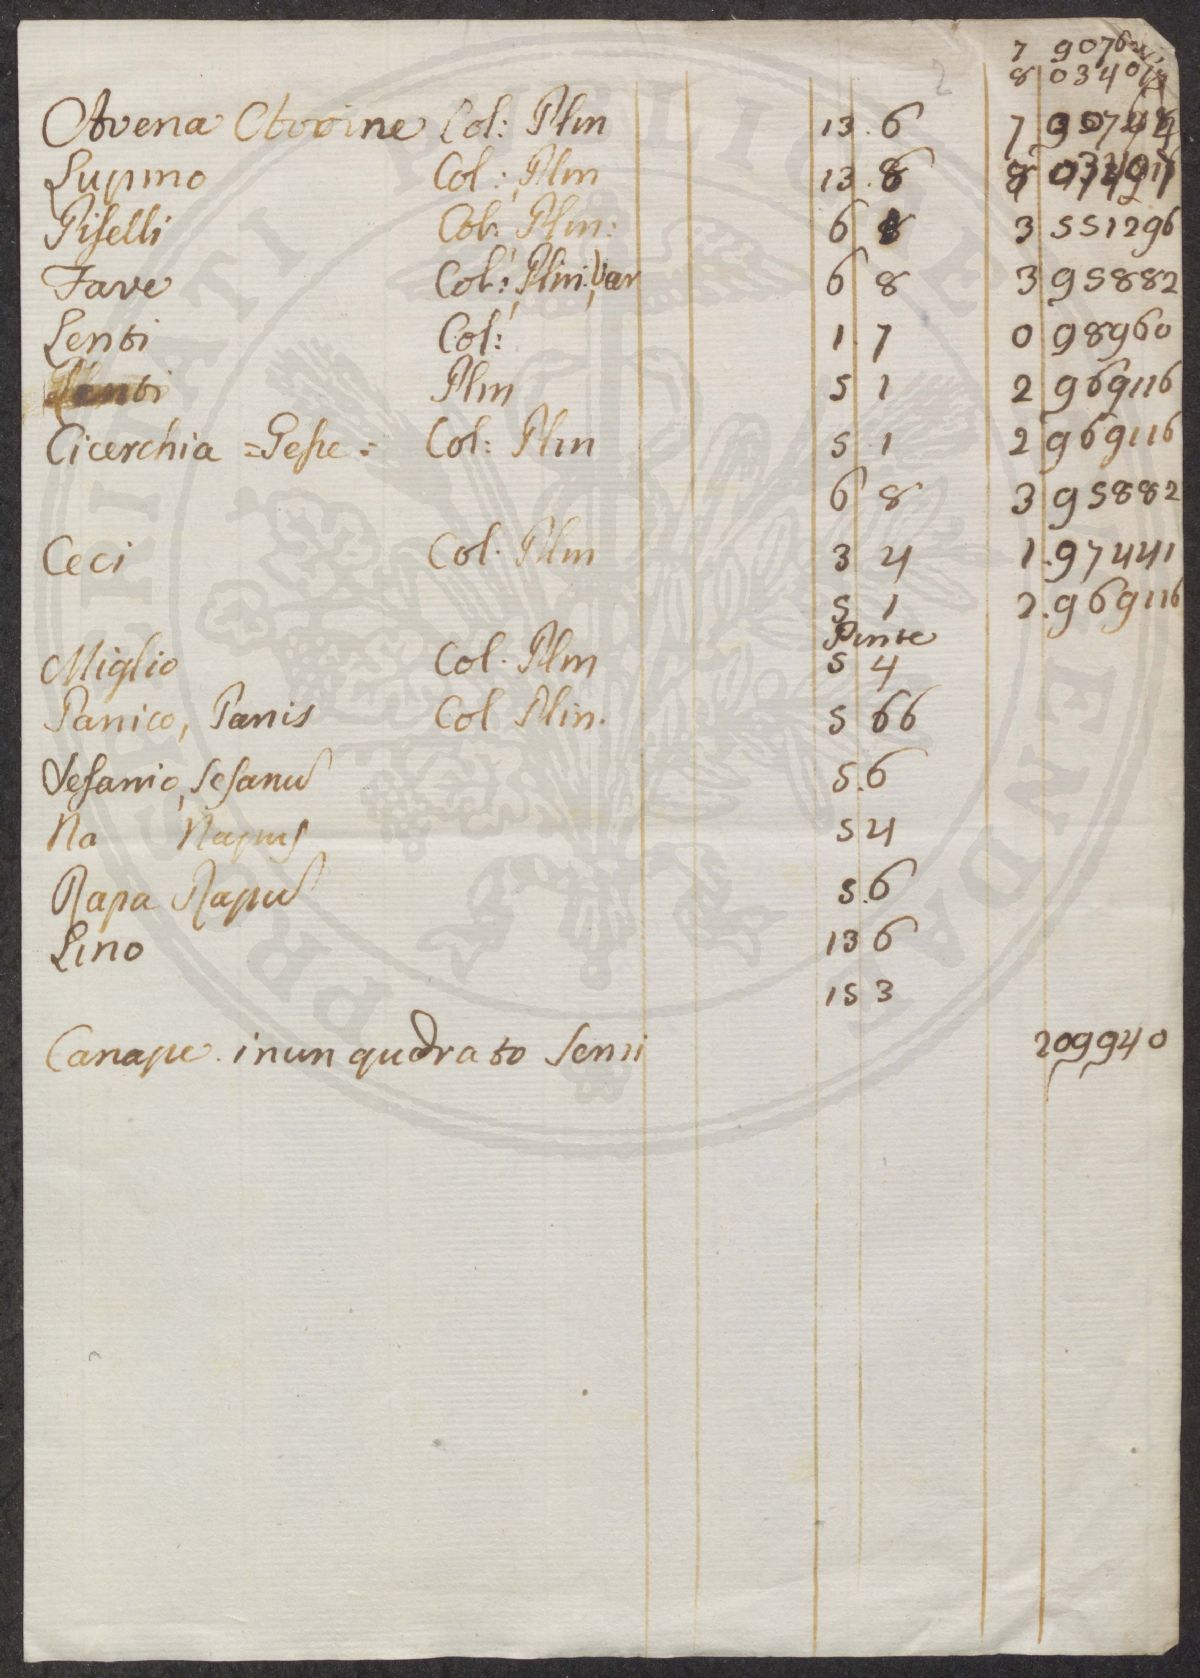 7 9076
8 0340
2
Avena Col: Plin 13. 6 7
Lupino Col: Plin 13. 8 8
Piselli Col: Plin: 6 8 3 551296
Fave Col: Plin: Var 6 8 3 95882
Lenti Col: 1. 7 0 98960
Lenti Plin 5 1 2 969116
Cicerchia Col: Plin 5 1 2 969116
6 8 3 95882
Ceci Col. Plin 3 4 1. 97441
5 1 2. 969116
Pinte
Miglio Col. Plin 5 4
Panico, Panis Col Plin. 5 66
Sesamo, Sesamu 5. 6
Na Napus 5 4
Rapa Rapu 5. 6
Lino 13 6
15 3
Canape in un quadrato 209940
PRIVATI PUBLICAE